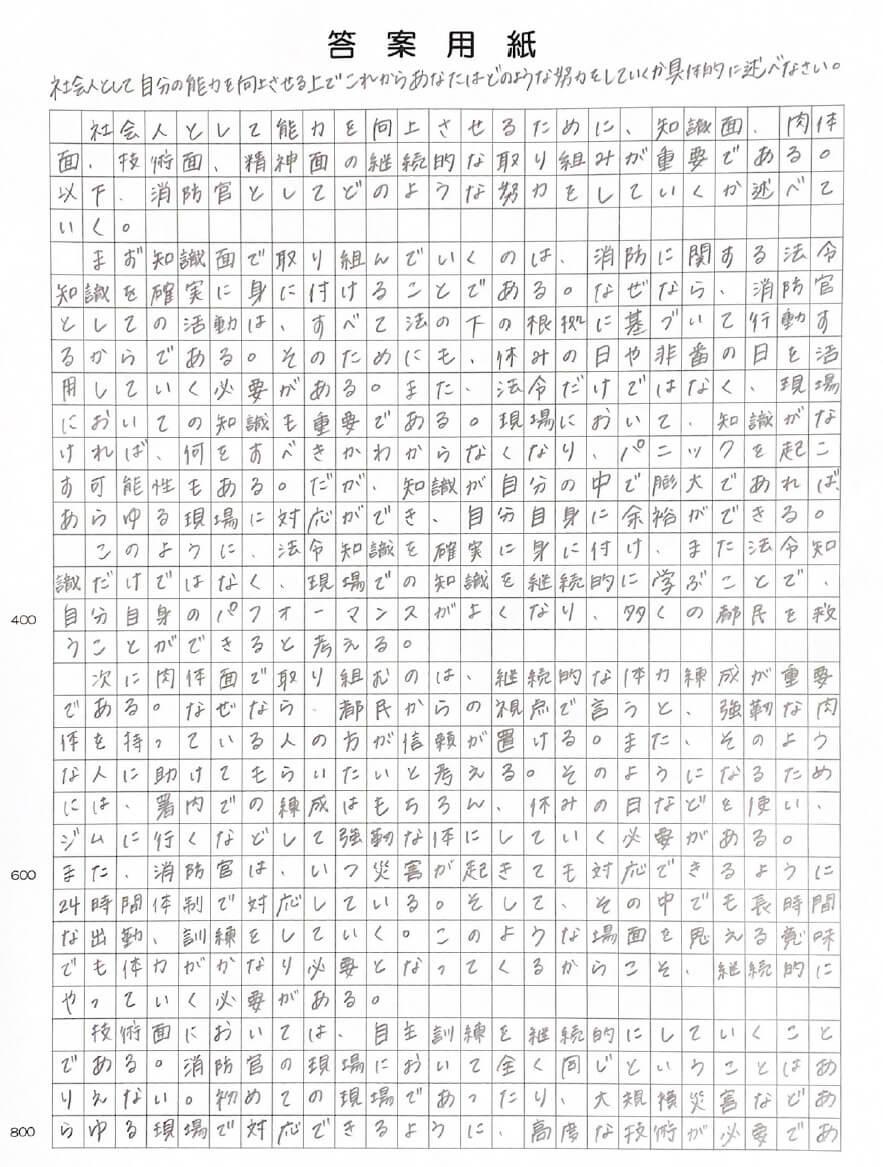 答案用紙
社会人として自分の能力を向上させる上でこれからあなたはどのような努力をしていくか具体的に述べなさい。
社会人として能力を向上させるために、知識面、肉体
面、技術面、精神面の継続的な取り組みが重要である。
以下、消防官としてどのような努力をしていくか述べて
いく。
まず知識面で取り組んでいくのは、消防に関する法令
知識を確実に身に付けることである。なぜなら、消防官
としての活動は、すべて法の下の根拠に基づいて行動す
るからである。そのためにも、休みの日や非番の日を活
用していく必要がある。また、法令だけではなく、現場
においての知識も重要である。現場において、知識がな
ければ、何をすべきかわからなくなり、パニックを起こ
す可能性もある。だが、知識が自分の中で膨大であれば、
あらゆる現場に対応ができ、自分自身に余裕ができる。
このように、法令知識を確実に身に付け、また法令知
識だけではなく、現場での知識を継続的に学ぶことで、
400
自分自身のパフォーマンスがよくなり、多くの都民を救
うことができると考える。
次に肉体面で取り組むのは、継続的な体力練成が重要
である。なぜなら、都民からの視点で言うと、強靭な肉
体を持っている人の方が信頼が置ける。また、そのよう
な人に助けてもらいたいと考える。そのようになるため
には、署内での練成はもちろん、休みの日などを使い、
ジムに行くなどして強靭な体にしていく必要がある。
600
また、消防官は、いつ災害が起きても対応できるように
24時間体制で対応している。そして、その中でも長時間
な出動、訓練をしていく。このような場面を思える意味
でも体力がかなり必要となってくるからこそ、継続的に
やっていく必要がある。
技術面においては、自主訓練を継続的にしていくこと
である。消防官の現場において全く同じということはあ
りえない。初めての現場であったり、大規模災害などあ
800
らゆる現場で対応できるように、高度な技術が必要であ